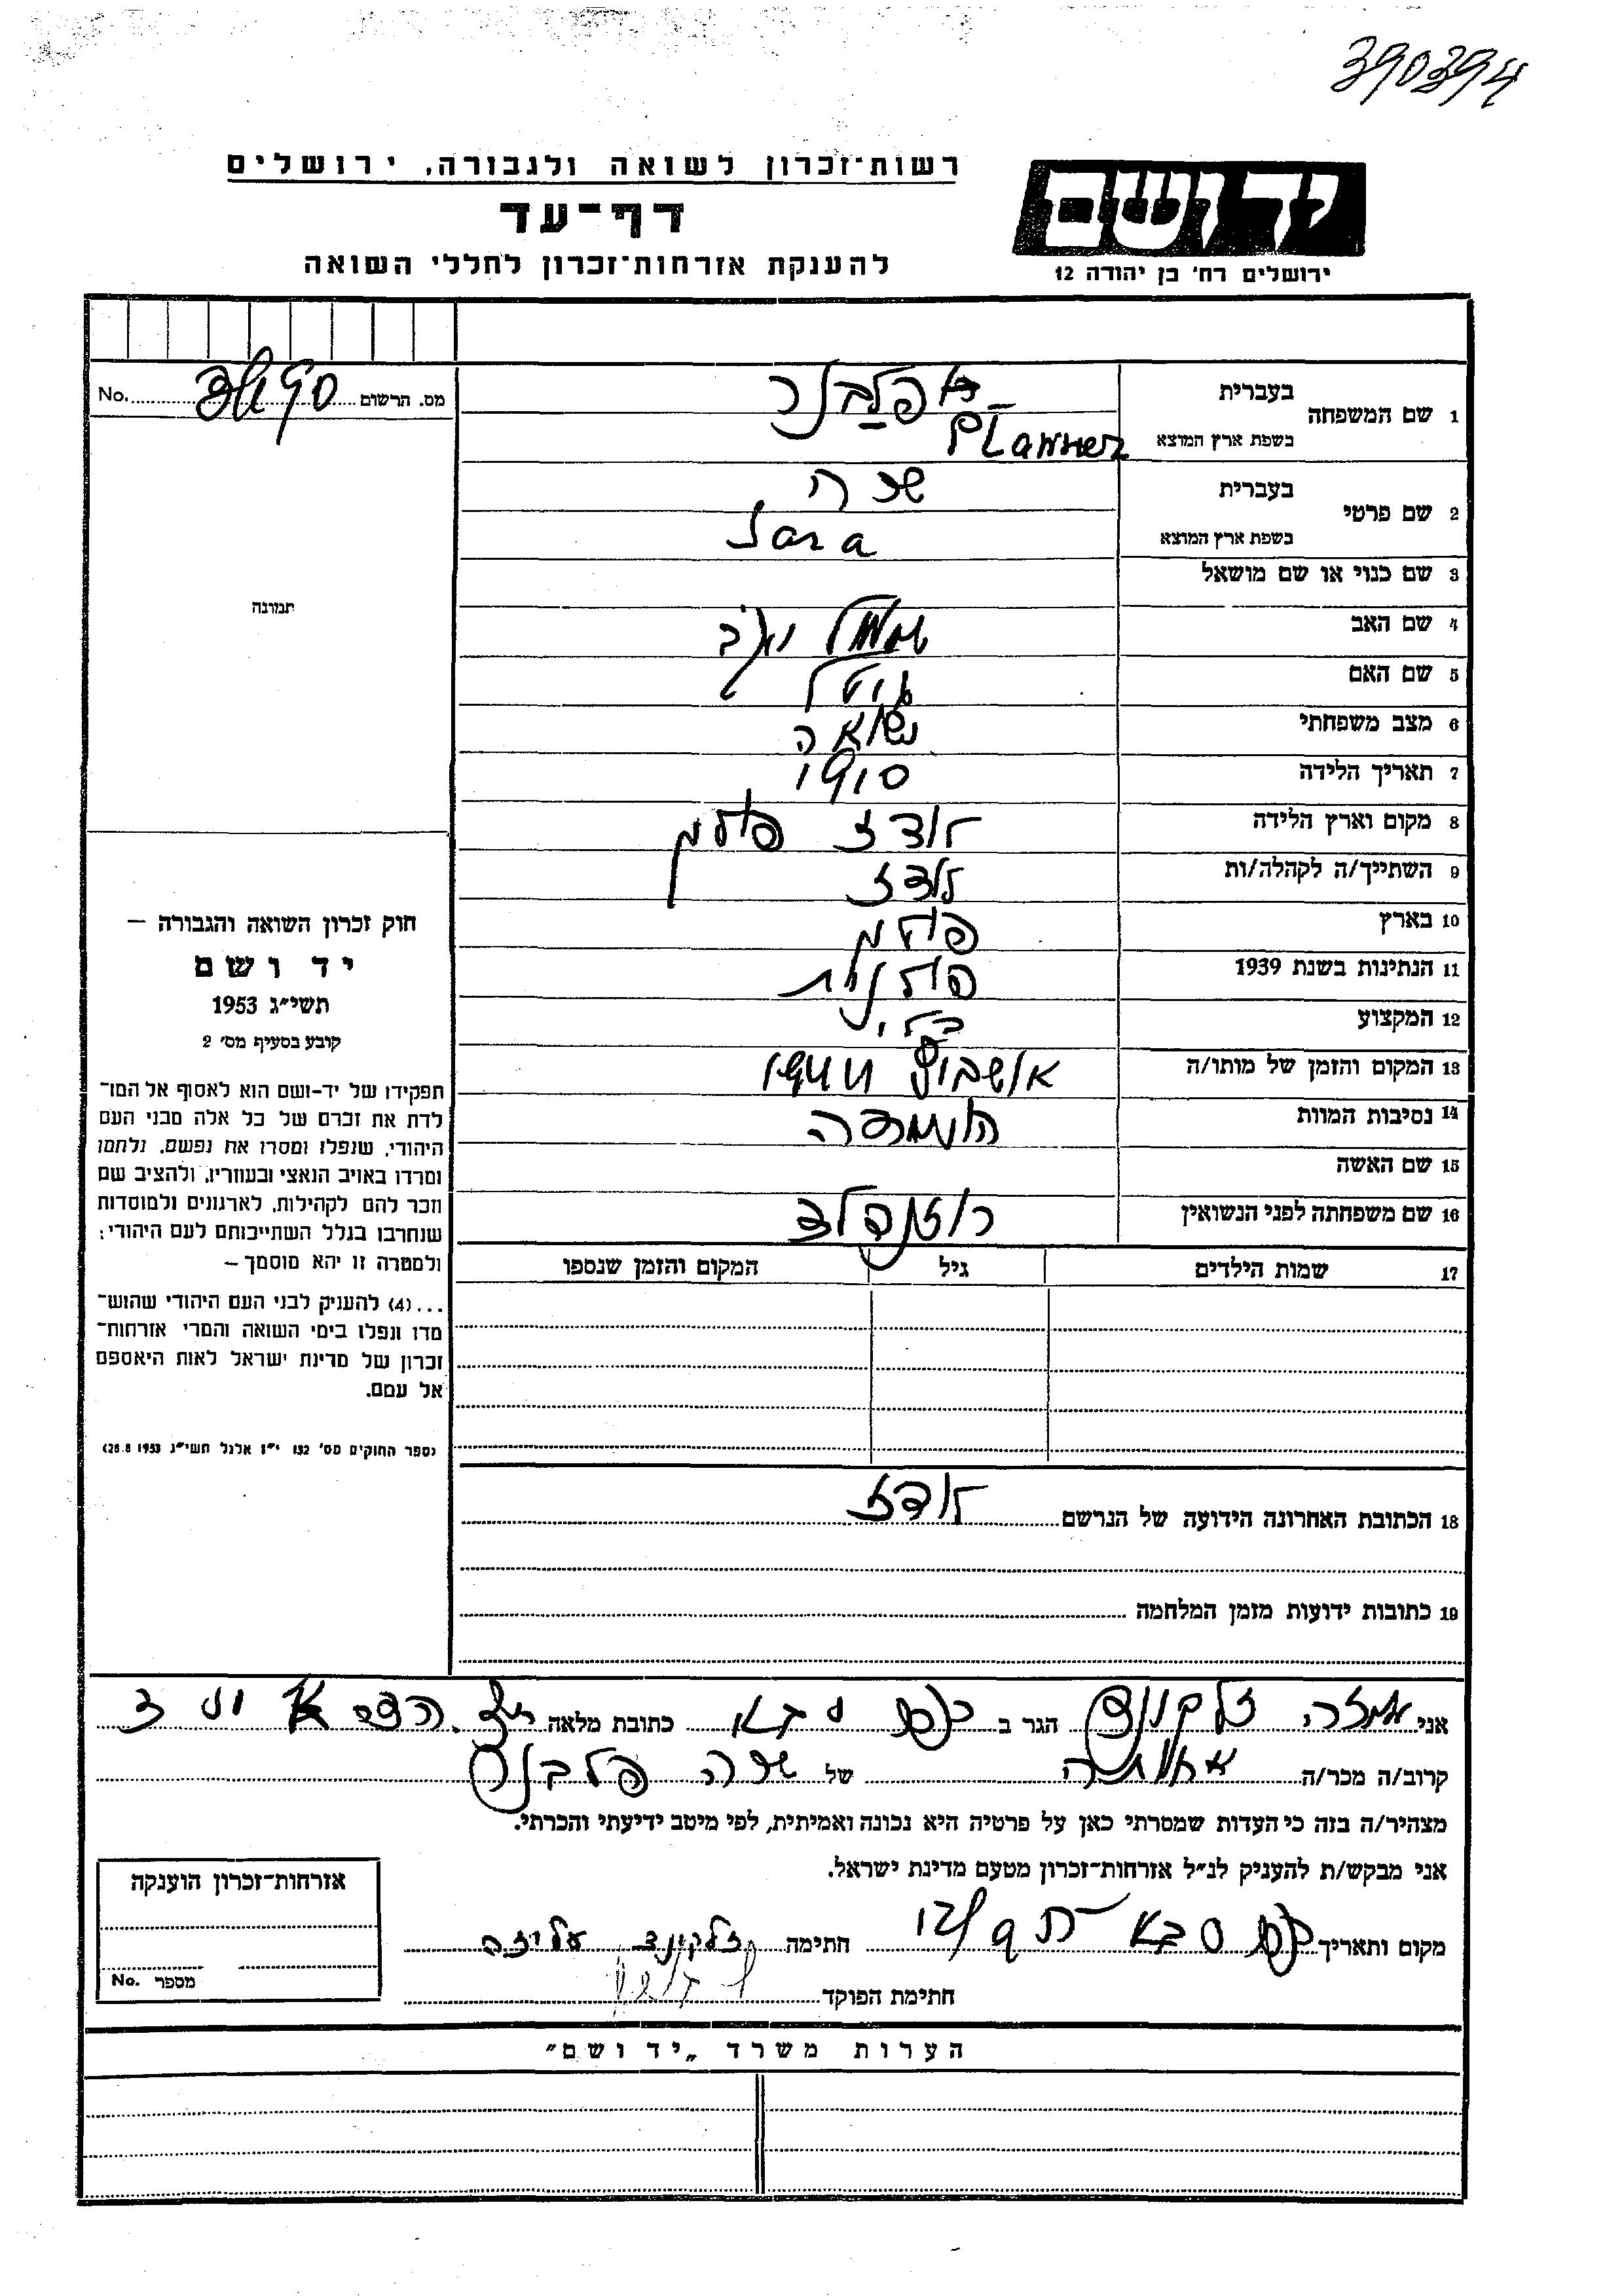 390394
רשות־זכרון לשואה ולגבורה, ירושלים
דף־עד
להענקת אזרחות־זכרון לחללי השואה
יד ושם
ירושלים רח' בן יהודה 12
מס. הרשום No.
1 שם המשפחה בעברית פלבנר
בשפת ארץ המוצא Planner
2 שם פרטי בעברית שרה
בשפת ארץ המוצא Sara
3 שם כנוי או שם מושאל
תמונה
4 שם האב שמואל
5 שם האם גיטל
6 מצב משפחתי נשואה
7 תאריך הלידה 1910
8 מקום וארץ הלידה לודז פולין
9 השתייך/ה לקהלה/ות לודז
10 בארץ פולין
11 הנתינות בשנת 1939 פולנית
12 המקצוע
13 המקום והזמן של מותו/ה אושביץ 1944
14 נסיבות המוות הושמדה
15 שם האשה
16 שם משפחתה לפני הנשואין רוזנפלד
17 שמות הילדים גיל המקום והזמן שנספו
חוק זכרון השואה והגבורה —
יד ושם
תשי"ג 1953
קובע בסעיף מס' 2
תפקידו של יד-ושם הוא לאסוף אל המו־
לדת את זכרם של כל אלה מבני העם
היהודי, שנפלו ומסרו את נפשם, נלחמו
ומרדו באויב הנאצי ובעוזריו, ולהציב שם
וזכר להם לקהילות, לארגונים ולמוסדות
שנחרבו בגלל השתייכותם לעם היהודי;
ולמטרה זו יהא מוסמך —
...(4) להעניק לבני העם היהודי שהוש־
מדו ונפלו בימי השואה והמרי אזרחות־
זכרון של מדינת ישראל לאות היאספם
אל עמם.
(ספר החוקים מס' 132 י"ז אלול תשי"ג 28.8.1953)
18 הכתובת האחרונה הידועה של הנרשם לודז
19 כתובות ידועות מזמן המלחמה
אני זלקונד הגר ב כפר סבא כתובת מלאה
קרוב/ה מכר/ה אחותה של שרה פלבנר
מצהיר/ה בזה כי העדות שמסרתי כאן על פרטיה היא נכונה ואמיתית, לפי מיטב ידיעתי והכרתי.
אני מבקש/ת להעניק לנ"ל אזרחות־זכרון מטעם מדינת ישראל.
מקום ותאריך כפר סבא חתימה זלקונד עליזה
חתימת הפוקד
אזרחות־זכרון הוענקה
מספר No.
הערות משרד „יד ושם"